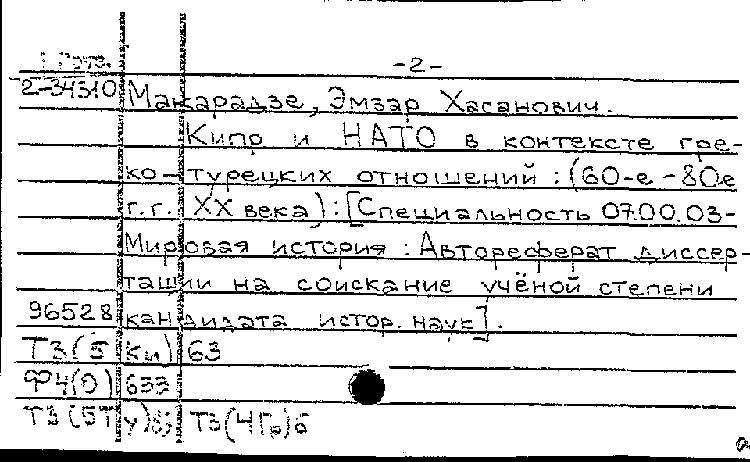 -2-
2-34310 Макарадзе, Эмзар Хасанович.
Кипр и НАТО в контексте гре-
ко-турецких отношений : (60-е - 80е
г.г. XX века) : [Специальность 07.00.03-
Мировая история : Автореферат диссер-
тации на соискание учёной степени
96528 кандидата истор. наук].
Т3(5Ки)63
Ф4(0)633
Т3(5Ту) Т3(4Гр)6